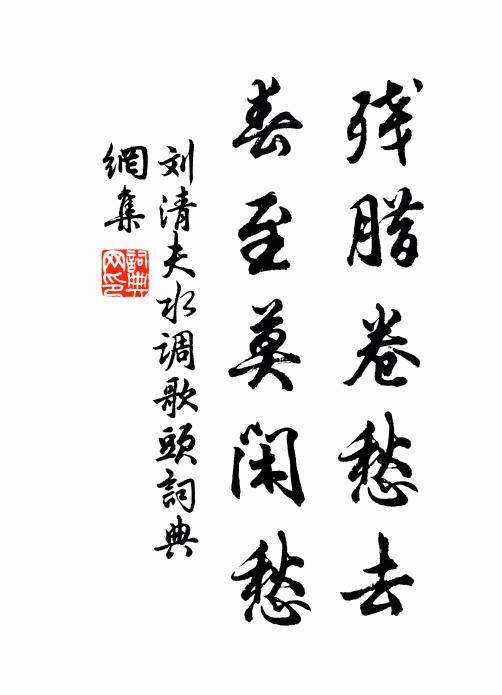 残腊卷愁去
春至莫闲愁
刘清夫水调歌头詞典
網集
詞典
网印